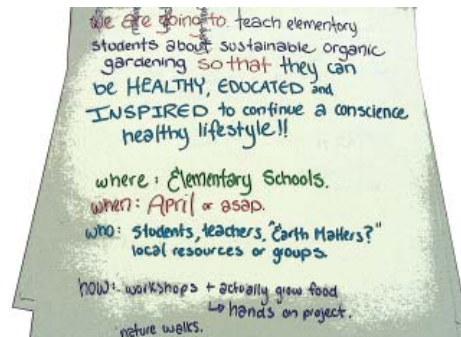 We are going to teach elementary
students about sustainable organic
gardening so that they can
be HEALTHY, EDUCATED and
INSPIRED to continue a conscience
healthy lifestyle!!
where: Elementary Schools.
when: April or asap.
who: students, teachers, "Earth Matters?"
local resources or groups.
how: workshops + actually grow food
↳ hands on project.
nature walks.